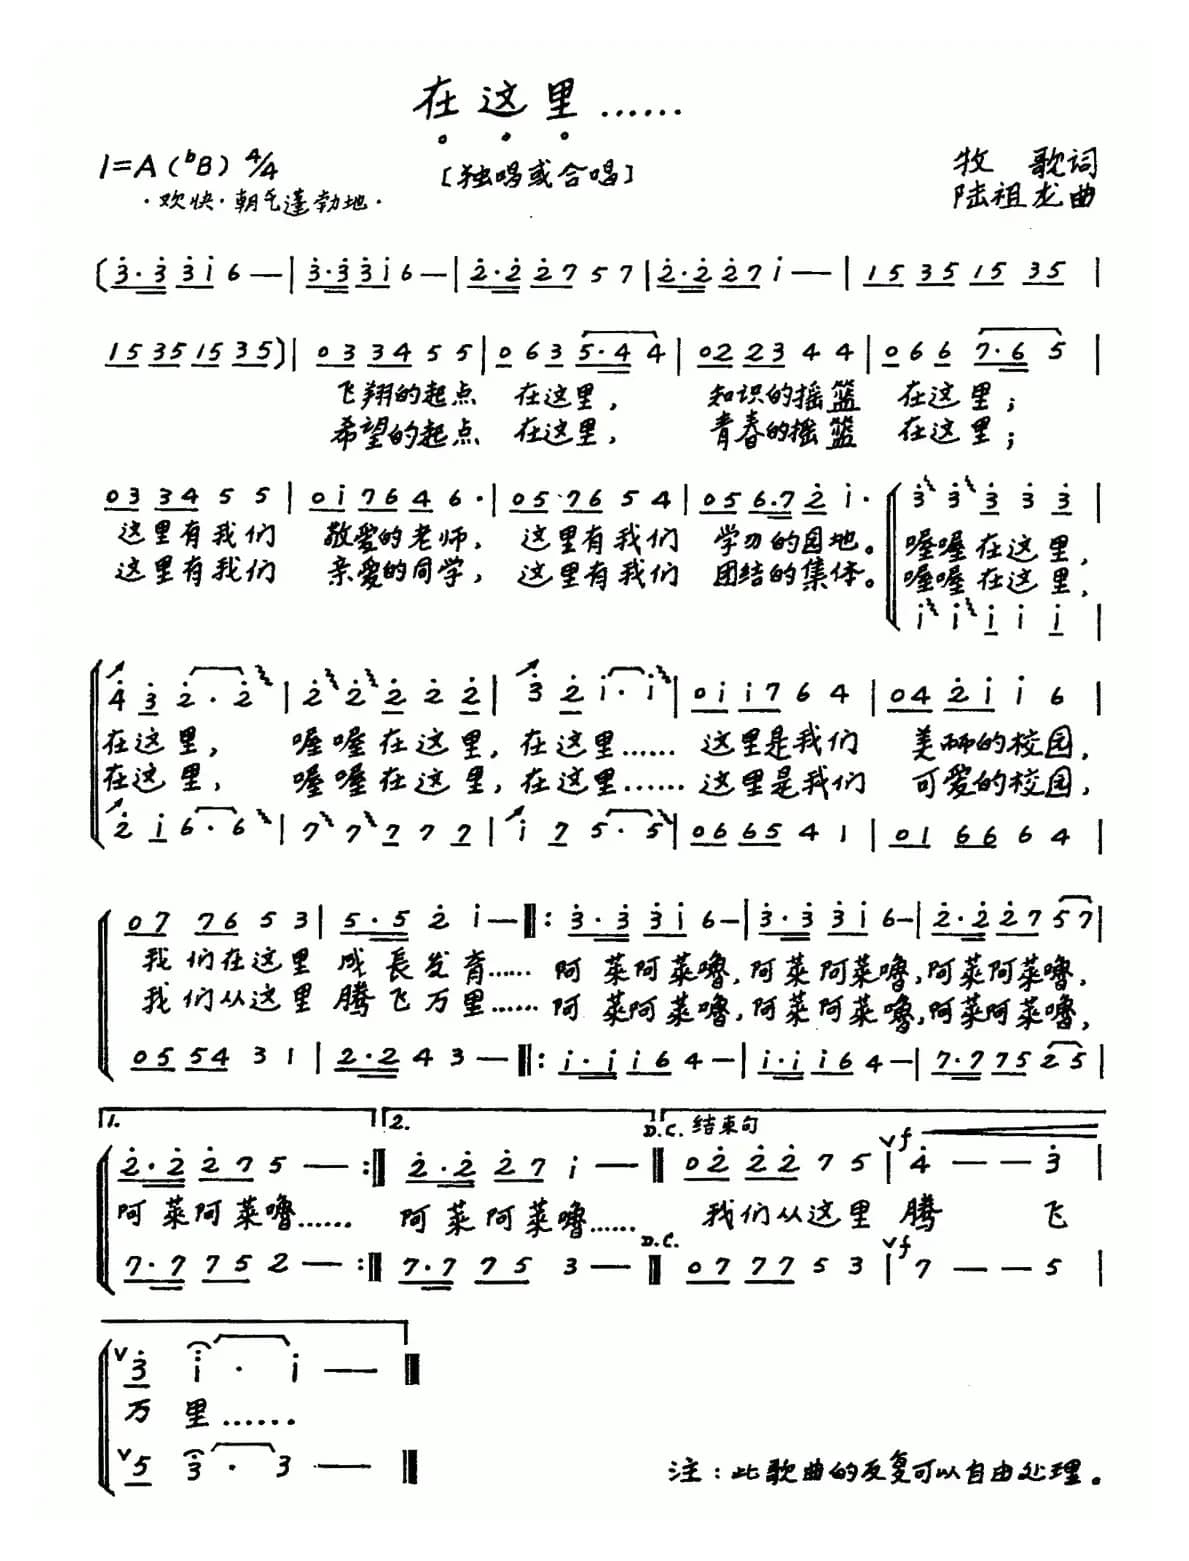 在这里……
1=A（ᵇB）4/4
［独唱或合唱］
牧 歌词
·欢快·朝气蓬勃地·
陆祖龙曲
(3·3 3i 6 — | 3·3 3i 6 — | 2·2 27 5 7 | 2·2 27 i — | 15 35 15 35 |
15 35 15 35) | 03 34 5 5 | 06 3 5·4 4 | 02 23 4 4 | 06 6 7·6 5 |
飞翔的起点 在这里， 知识的摇篮 在这里；
希望的起点 在这里， 青春的摇篮 在这里；
03 34 5 5 | 0i 76 4 6· | 05 76 5 4 | 05 6·7 2 i· | 3 3 3 3 3 |
这里有我们 敬爱的老师， 这里有我们 学习的园地。 喔喔在这里，
这里有我们 亲爱的同学， 这里有我们 团结的集体。 喔喔在这里，
i i i i i |
4 3 2·2 | 2 2 2 2 2 | 3 2 i·i | 0i i7 6 4 | 04 2i i 6 |
在这里， 喔喔在这里，在这里…… 这里是我们 美丽的校园，
在这里， 喔喔在这里，在这里…… 这里是我们 可爱的校园，
2 i 6·6 | 7 7 7 7 7 | i 7 5·5 | 06 65 4 1 | 01 66 6 4 |
07 76 5 3 | 5·5 2 i — ‖: 3·3 3i 6 — | 3·3 3i 6 — | 2·2 27 57 |
我们在这里 成长发育…… 阿莱阿莱噜，阿莱阿莱噜，阿莱阿莱噜，
我们从这里 腾飞万里…… 阿莱阿莱噜，阿莱阿莱噜，阿莱阿莱噜，
05 54 3 1 | 2·2 4 3 — ‖: i·i i6 4 — | i·i i6 4 — | 7·7 75 25 |
1. 2. D.C. 结束句
2·2 27 5 — :‖ 2·2 27 i — ‖ 02 22 7 5 | ∨f 4 — — 3 |
阿莱阿莱噜…… 阿莱阿莱噜…… 我们从这里 腾 飞
D.C.
7·7 75 2 — :‖ 7·7 75 3 — ‖ 07 77 5 3 | ∨f 7 — — 5 |
∨3 i · i — ‖
万 里……
∨5 3 · 3 — ‖
注：此歌曲的反复可以自由处理。